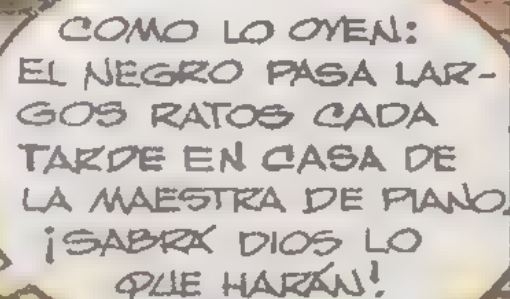 COMO LO OYEN:
EL NEGRO PASA LAR-
GOS RATOS CADA
TARDE EN CASA DE
LA MAESTRA DE PIANO.
¡SABRÁ DIOS LO
QUE HARÁN!